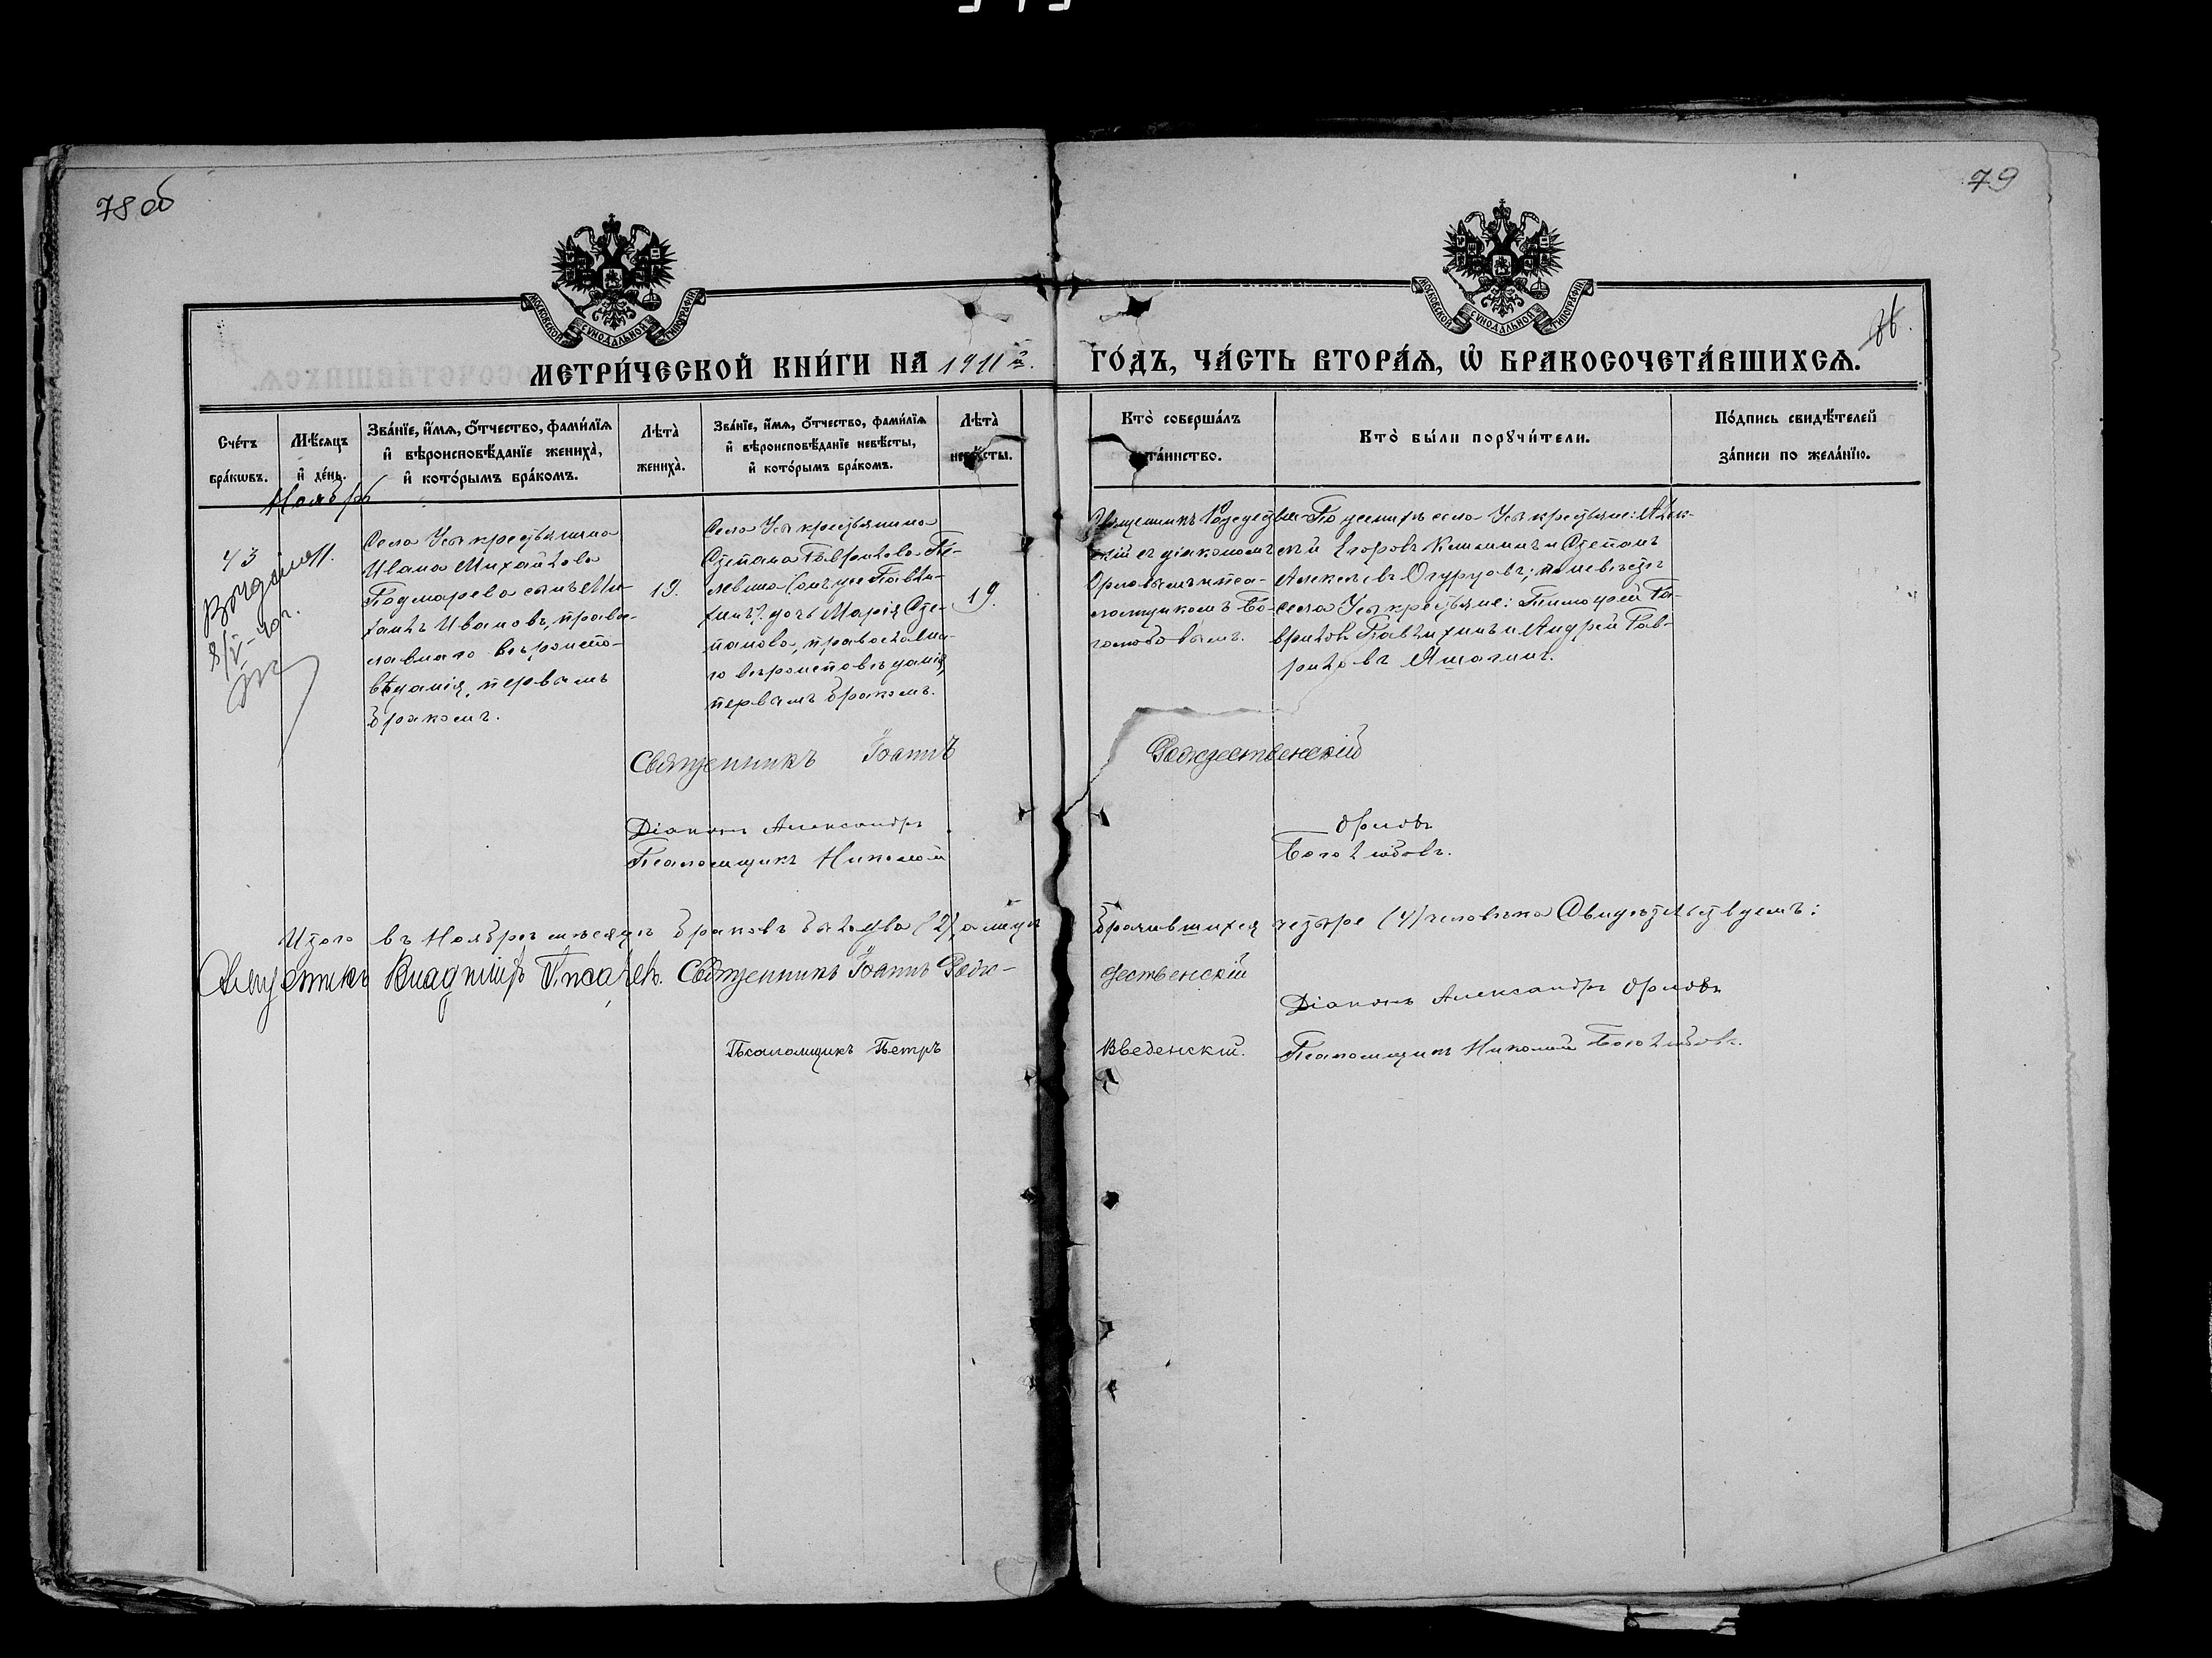 78 об
79
МОСКОВСКОЙ СУНОДАЛЬНОЙ ТИПОГРАФІИ
МОСКОВСКОЙ СУНОДАЛЬНОЙ ТИПОГРАФІИ
МЕТРИ́ЧЕСКОЙ КНИ́ГИ НА 1911 г. ГО́ДЪ, ЧА́СТЬ ВТОРА́Я, Ѡ БРАКОСОЧЕТА́ВШИХСЯ.
Сче́тъ
бра́кѡвъ.
Мѣ́сяцъ
и҆ де́нь.
Зва́нїе, и҆́мя, ѻ҆́тчество, фами́лїя
и҆ вѣроисповѣ́данїе жениха̀,
и҆ кото́рымъ бра́комъ.
Лѣта̀
жениха̀.
Зва́нїе, и҆́мя, ѻ҆́тчество, фами́лїя
и҆ вѣроисповѣ́данїе невѣ́сты,
и҆ кото́рымъ бра́комъ.
Лѣта̀
невѣ́сты.
Кто̀ соверша́лъ
та́инство.
Кто̀ бы́ли порꙋчи́тели.
По́дпись свидѣ́телей
за́писи по жела́нїю.
Ноябрь
43
11.
Села Усы крестьянина
Ивана Михайлова
сынъ Ми-
хаилъ Ивановъ, право-
славнаго вѣроиспо-
вѣданія, первымъ
бракомъ.
19.
Села Усы крестьянина
Степана Гаврилова
дочь Марія Сте-
панова, православна-
го вѣроисповѣданія,
первымъ бракомъ.
19.
Священникъ Рождествен-
скій съ діакономъ
Орловымъ и пса-
ломщикомъ Бо-
голюбовымъ.
По женихѣ села Усы крестьяне: Алек-
сѣй Егоровъ и Степанъ
Алексѣевъ Огурцовъ; по невѣстѣ
села Усы крестьяне: Тимофей Га-
вриловъ и Андрей Гав-
риловъ
Священникъ Іоаннъ Рождественскій
Діаконъ Александръ Орловъ
Псаломщикъ Николай Боголюбовъ.
Итого въ Ноябрѣ мѣсяцѣ браковъ было два (2), а лицъ брачившихся четыре (4) человѣка Свидѣтельствуемъ:
Священникъ Владиміръ Писаревъ. Священникъ Іоаннъ Рож-
дественскій
Діаконъ Александръ Орловъ
Псаломщикъ Петръ Введенскій. Псаломщикъ Николай Боголюбовъ.